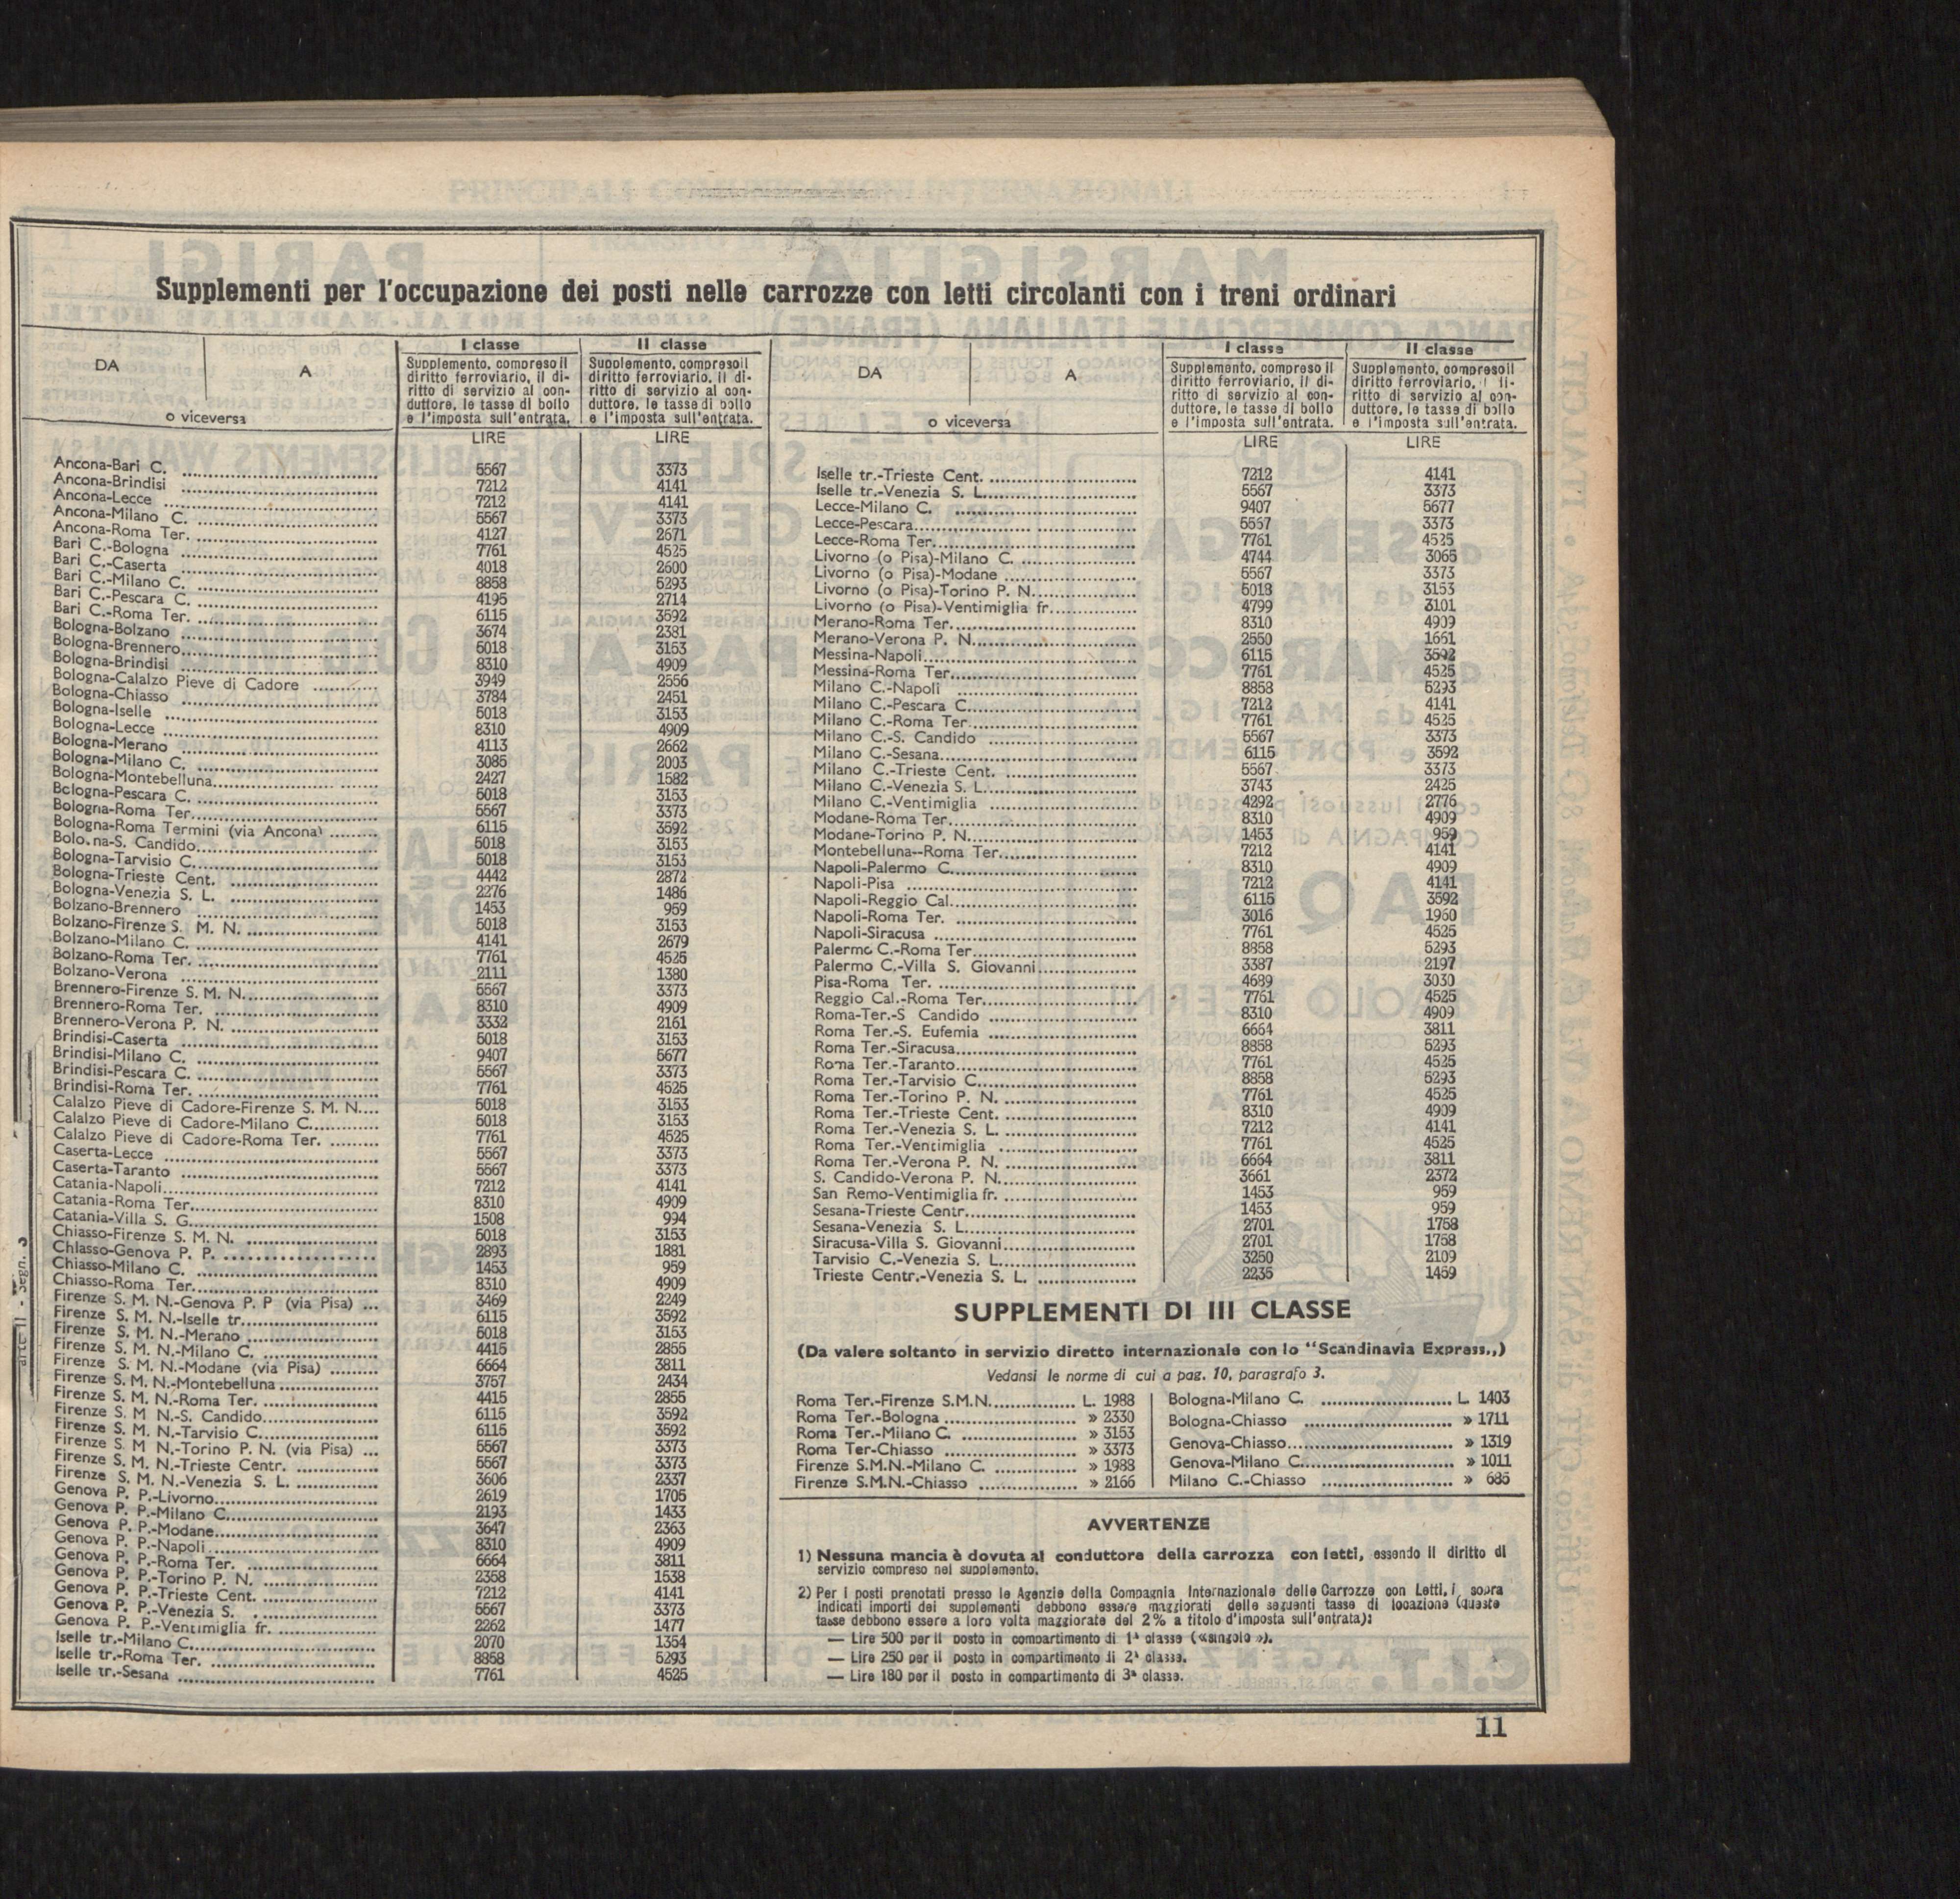 Supplementi per l'occupazione dei posti nelle carrozze con letti circolanti con i treni ordinari
DA A
o viceversa
I classe
Supplemento, compreso il
diritto ferroviario, il di-
ritto di servizio al con-
duttore, le tasse di bollo
e l'imposta sull'entrata.
LIRE
II classe
Supplemento, compreso il
diritto ferroviario, il di-
ritto di servizio al con-
duttore, le tasse di bollo
e l'imposta sull'entrata.
LIRE
Ancona-Bari C. 5567 3373
Ancona-Brindisi 7212 4141
Ancona-Lecce 7212 4141
Ancona-Milano C. 5567 3373
Ancona-Roma Ter. 4127 2671
Bari C.-Bologna 7761 4525
Bari C.-Caserta 4018 2600
Bari C.-Milano C. 8858 5293
Bari C.-Pescara C. 4195 2714
Bari C.-Roma Ter. 6115 3592
Bologna-Bolzano 3674 2381
Bologna-Brennero 5018 3153
Bologna-Brindisi 8310 4909
Bologna-Calalzo Pieve di Cadore 3949 2556
Bologna-Chiasso 3784 2451
Bologna-Iselle 5018 3153
Bologna-Lecce 8310 4909
Bologna-Merano 4113 2662
Bologna-Milano C. 3085 2003
Bologna-Montebelluna 2427 1582
Bologna-Pescara C. 5018 3153
Bologna-Roma Ter. 5567 3373
Bologna-Roma Termini (via Ancona) 6115 3592
Bolo.na-S. Candido 5018 3153
Bologna-Tarvisio C. 5018 3153
Bologna-Trieste Cent. 4442 2872
Bologna-Venezia S. L. 2276 1486
Bolzano-Brennero 1453 959
Bolzano-Firenze S. M. N. 5018 3153
Bolzano-Milano C. 4141 2679
Bolzano-Roma Ter. 7761 4525
Bolzano-Verona 2111 1380
Brennero-Firenze S. M. N. 5567 3373
Brennero-Roma Ter. 8310 4909
Brennero-Verona P. N. 3332 2161
Brindisi-Caserta 5018 3153
Brindisi-Milano C. 9407 5677
Brindisi-Pescara C. 5567 3373
Brindisi-Roma Ter. 7761 4525
Calalzo Pieve di Cadore-Firenze S. M. N. 5018 3153
Calalzo Pieve di Cadore-Milano C. 5018 3153
Calalzo Pieve di Cadore-Roma Ter. 7761 4525
Caserta-Lecce 5567 3373
Caserta-Taranto 5567 3373
Catania-Napoli 7212 4141
Catania-Roma Ter. 8310 4909
Catania-Villa S. G. 1508 994
Chiasso-Firenze S. M. N. 5018 3153
Chiasso-Genova P. P. 2893 1881
Chiasso-Milano C. 1453 959
Chiasso-Roma Ter. 8310 4909
Firenze S. M. N.-Genova P. P (via Pisa) 3469 2249
Firenze S. M. N.-Iselle tr. 6115 3592
Firenze S. M. N.-Merano 5018 3153
Firenze S. M. N.-Milano C. 4415 2855
Firenze S. M. N.-Modane (via Pisa) 6664 3811
Firenze S. M. N.-Montebelluna 3757 2434
Firenze S. M. N.-Roma Ter. 4415 2855
Firenze S. M N.-S. Candido 6115 3592
Firenze S. M. N.-Tarvisio C. 6115 3592
Firenze S. M N.-Torino P. N. (via Pisa) 5567 3373
Firenze S. M. N.-Trieste Centr. 5567 3373
Firenze S. M. N.-Venezia S. L. 3606 2337
Genova P. P.-Livorno 2619 1705
Genova P. P.-Milano C. 2193 1433
Genova P. P.-Modane 3647 2363
Genova P. P.-Napoli 8310 4909
Genova P. P.-Roma Ter. 6664 3811
Genova P. P.-Torino P. N. 2358 1538
Genova P. P.-Trieste Cent. 7212 4141
Genova P. P.-Venezia S. 5567 3373
Genova P. P.-Ventimiglia fr. 2262 1477
Iselle tr.-Milano C. 2070 1354
Iselle tr.-Roma Ter. 8858 5293
Iselle tr.-Sesana 7761 4525
DA A
o viceversa
I classe
Supplemento, compreso il
diritto ferroviario, il di-
ritto di servizio al con-
duttore, le tasse di bollo
e l'imposta sull'entrata.
LIRE
II classe
Supplemento, compreso il
diritto ferroviario, di-
ritto di servizio al con-
duttore, le tasse di bollo
e l'imposta sull'entrata.
LIRE
Iselle tr.-Trieste Cent. 7212 4141
Iselle tr.-Venezia S. L. 5567 3373
Lecce-Milano C. 9407 5677
Lecce-Pescara 5567 3373
Lecce-Roma Ter. 7761 4525
Livorno (o Pisa)-Milano C. 4744 3065
Livorno (o Pisa)-Modane 5567 3373
Livorno (o Pisa)-Torino P. N. 5018 3153
Livorno (o Pisa)-Ventimiglia fr. 4799 3101
Merano-Roma Ter. 8310 4909
Merano-Verona P. N. 2550 1661
Messina-Napoli 6115 3592
Messina-Roma Ter. 7761 4525
Milano C.-Napoli 8858 5293
Milano C.-Pescara C. 7212 4141
Milano C.-Roma Ter. 7761 4525
Milano C.-S. Candido 5567 3373
Milano C.-Sesana 6115 3592
Milano C.-Trieste Cent. 5567 3373
Milano C.-Venezia S. L. 3743 2425
Milano C.-Ventimiglia 4292 2776
Modane-Roma Ter. 8310 4909
Modane-Torino P. N. 1453 959
Montebelluna--Roma Ter. 7212 4141
Napoli-Palermo C. 8310 4909
Napoli-Pisa 7212 4141
Napoli-Reggio Cal. 6115 3592
Napoli-Roma Ter. 3016 1960
Napoli-Siracusa 7761 4525
Palermo C.-Roma Ter. 8858 5293
Palermo C.-Villa S. Giovanni 3387 2197
Pisa-Roma Ter. 4689 3030
Reggio Cal.-Roma Ter. 7761 4525
Roma-Ter.-S Candido 8310 4909
Roma Ter.-S. Eufemia 6664 3811
Roma Ter.-Siracusa 8858 5293
Roma Ter.-Taranto 7761 4525
Roma Ter.-Tarvisio C. 8858 5293
Roma Ter.-Torino P. N. 7761 4525
Roma Ter.-Trieste Cent. 8310 4909
Roma Ter.-Venezia S. L. 7212 4141
Roma Ter.-Ventimiglia 7761 4525
Roma Ter.-Verona P. N. 6664 3811
S. Candido-Verona P. N. 3661 2372
San Remo-Ventimiglia fr. 1453 959
Sesana-Trieste Centr. 1453 959
Sesana-Venezia S. L. 2701 1758
Siracusa-Villa S. Giovanni 2701 1758
Tarvisio C.-Venezia S. L. 3250 2109
Trieste Centr.-Venezia S. L. 2235 1459
SUPPLEMENTI DI III CLASSE
(Da valere soltanto in servizio diretto internazionale con lo "Scandinavia Express,,)
Vedansi le norme di cui a pag. 10, paragrafo 3.
Roma Ter.-Firenze S.M.N. L. 1988
Roma Ter.-Bologna » 2330
Roma Ter.-Milano C. » 3153
Roma Ter-Chiasso » 3373
Firenze S.M.N.-Milano C. » 1988
Firenze S.M.N.-Chiasso » 2166
Bologna-Milano C. L. 1403
Bologna-Chiasso » 1711
Genova-Chiasso » 1319
Genova-Milano C. » 1011
Milano C.-Chiasso » 686
AVVERTENZE
1) Nessuna mancia è dovuta al conduttore della carrozza con letti, essendo il diritto di
servizio compreso nel supplemento.
2) Per i posti prenotati presso le Agenzie della Compagnia Internazionale delle Carrozze con Letti, i sopra
indicati importi dei supplementi debbono essere maggiorati delle seguenti tasse di locazione (queste
tasse debbono essere a loro volta maggiorate del 2% a titolo d'imposta sull'entrata):
— Lire 500 per il posto in compartimento di 1ª classe («singolo»).
— Lire 250 per il posto in compartimento di 2ª classe.
— Lire 180 per il posto in compartimento di 3ª classe.
11